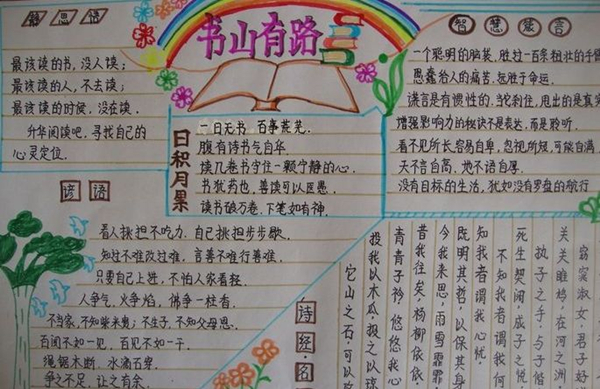 书山有路
最该读的书，没人读；
最该读的人，不去读；
最该读的时候，没在读。
升华阅读吧，寻找自己的
心灵定位。
日积月累
一日无书 百事荒芜。
腹有诗书气自华
读几卷书守住一颗宁静的心。
书犹药也，善读可以医愚
读书破万卷，下笔如有神。
智慧箴言
一个聪明的脑袋，胜过一百条粗壮的手臂
愚蠢给人的痛苦，远胜于命运。
谎言是有惯性的，当说刹住，甩出的是真实
增强影响力的秘诀不是表达，而是聆听
看不见所长，容易自卑，忽视所短，可能自满
天不言自高，地不语自厚。
没有目标的生活，犹如没有罗盘的航行
谚语
看人挑担不吃力，自己挑担步步歇。
知过不难改过难，言善不难行善难。
只要自己上进，不怕人家看轻。
人争气，火争焰，佛争一炷香。
不当家，不知柴米贵；不生子，不知父母恩。
百闻不如一见，百见不如一干。
绳锯木断，水滴石穿。
争之不足，让之有余。
诗经·名
窈窕淑女，君子好
关关雎鸠，在河之洲
执子之手，与子偕
死生契阔，成子之悦
不知我者谓我何
知我者谓我心忧
既明其哲，以保其身
今我来思，雨雪霏霏
昔我往矣，杨柳依依
青青子衿，悠悠我心
投我以木瓜，报之以琼
它山之石可以